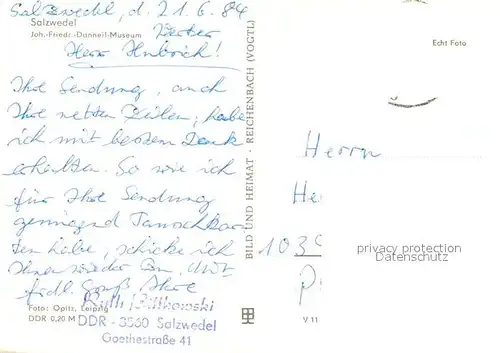 Salzwedel, d. 21.6.84
Salzwedel
Joh.-Friedr.-Danneil-Museum
Werter
Herr Hubrich!
Ihre Sendung, auch
Ihre netten Zeilen, habe
ich mit bestem Dank
erhalten. So wie ich
für Ihre Sendung
genügend Tauschkar
ten habe, schicke ich
Ihnen wieder
frdl. Gruß Ihre
Foto: Opitz, Leipzig
DDR 0,20 M
Ruth
DDR - 3560 Salzwedel
Goethestraße 41
BILD UND HEIMAT · REICHENBACH (VOGTL)
Echt Foto
Herrn
He
1039
privacy protection
Datenschutz
P
V 11